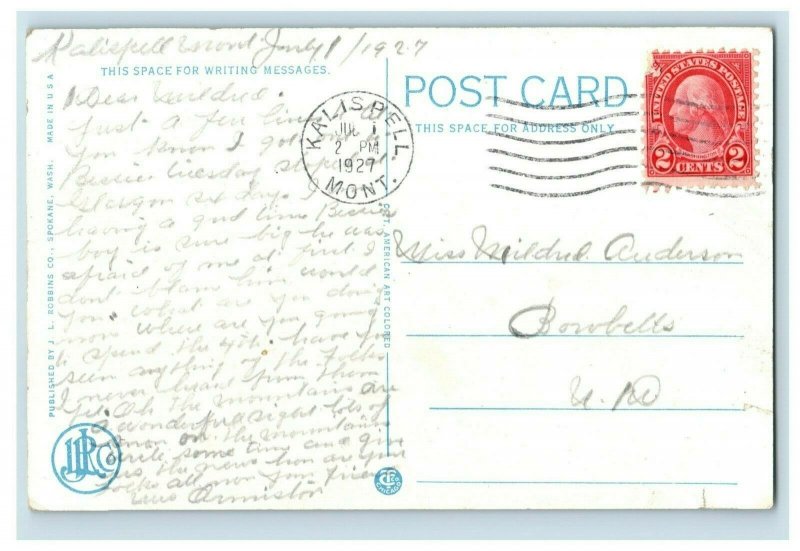 Kalispell Mont July 1/1927
THIS SPACE FOR WRITING MESSAGES.
Dear Mildred.
Just a few lines
you know I got
Bessies Tuesday
Glasgow six days I
having a good time Bessies
boy is sure big he was
afraid of me at first I
dont blame him would
you what are you doing
now where are you going
to spend the 4th have you
seen anything of the folks
I never heard from them
yet Oh the mountains are
a wonderful sight lots of
snow on the mountains
write some time and give
us the news how are your
folks all your friend
Ormiston
MADE IN U S A
PUBLISHED BY J. L. ROBBINS CO., SPOKANE, WASH.
JLRCO
POST CARD
THIS SPACE FOR ADDRESS ONLY
KALISPELL
JUL 1
2 PM
1927
MONT.
UNITED STATES POSTAGE
2 CENTS 2
C. T. AMERICAN ART COLORED
CHICAGO
Miss Mildred Anderson
Bowbells
N. D